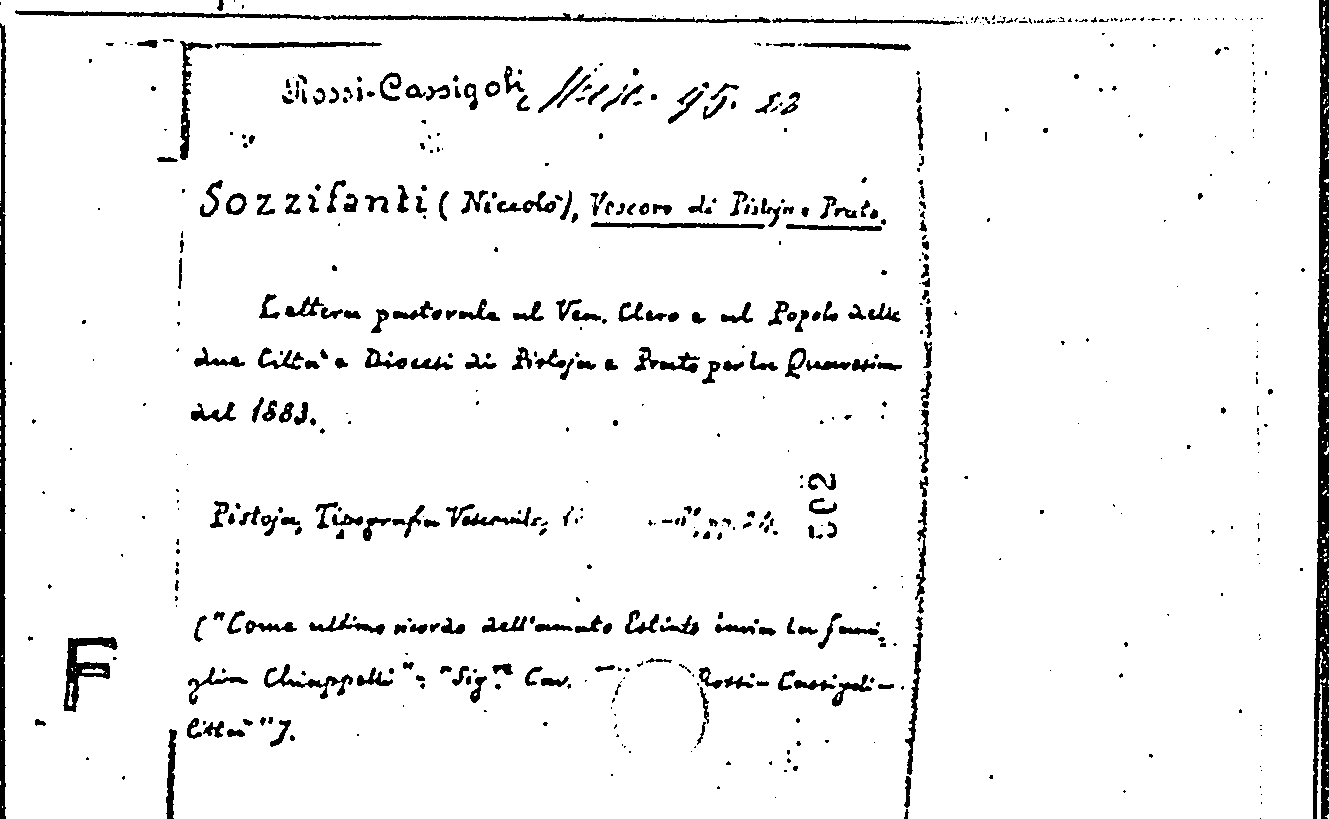 Rossi-Cassigoli, Misc. 95. 22
Sozzifanti (Niccolò), Vescovo di Pistoja e Prato.
Lettera pastorale al Ven. Clero e al Popolo delle
due Città e Diocesi di Pistoja e Prato per la Quaresima
del 1883.
Pistoja, Tipografia Vescovile, pp. 24.
502
("Come ultimo ricordo dell'amato Estinto invia la fami-
F
glia Chiappelli": "Sig.re Cav. Rossi-Cassigoli-
Città").